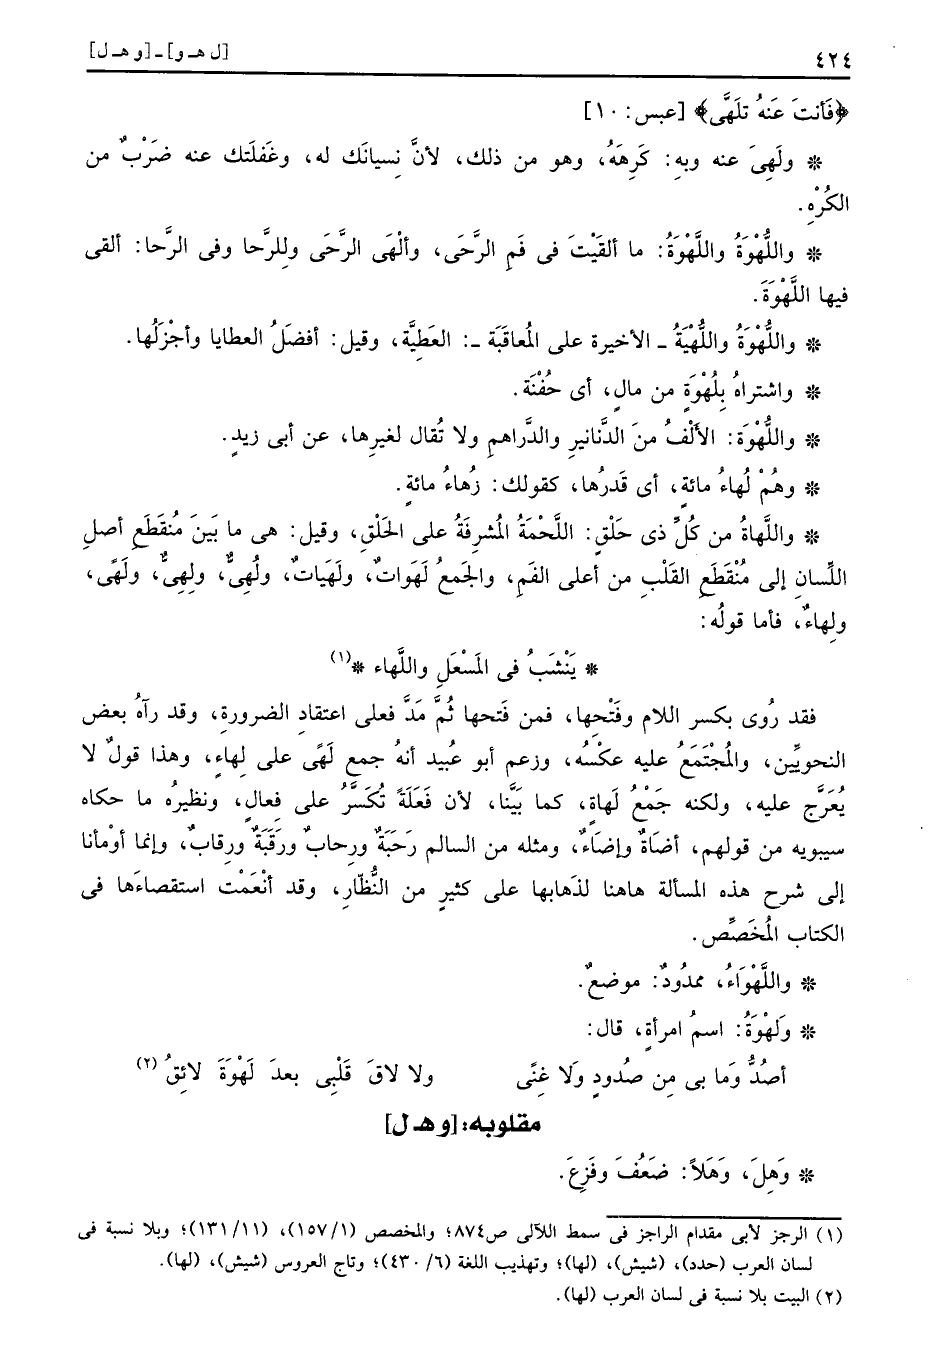 ٤٢٤
[ل هـ و] ـ [و هـ ل]
﴿فَأَنتَ عَنهُ تلَهَّى﴾ [عبس: ١٠]
* ولَهِىَ عنه وبِهِ: كَرِهَهُ، وهو من ذلك، لأنَّ نِسيانَك له، وغَفلَتك عنه ضَرْبٌ من
الكُرْهِ.
* واللُّهْوَةُ واللَّهْوَةُ: ما ألقَيْتَ فى فَمِ الرَّحَى، وألْهَى الرَّحَى وللِرَّحا وفى الرَّحا: ألقى
فيها اللَّهْوَةَ.
* واللُّهْوَةُ واللُّهْيَةُ ـ الأخيرة على المُعاقَبَة ـ: العَطِيَّة، وقيل: أفضَلُ العطايا وأجْزَلُها.
* واشتراهُ بِلُهْوَةٍ من مالٍ، أى حُفْنَة.
* واللُّهْوَة: الألْفُ منَ الدَّنانيرِ والدَّراهمِ ولا تُقال لغيرِها، عن أبى زيدٍ.
* وهُمْ لُهاءُ مائة، أى قَدرُها، كقولك: زُهاءُ مائةٍ.
* واللَّهاةُ من كُلِّ ذى حَلْقٍ: اللَّحْمَةُ المُشرفَةُ على الحَلْقِ، وقيل: هى ما بَينَ مُنقَطَعِ أصلِ
اللِّسانِ إلى مُنْقَطَعِ القَلْبِ من أعلى الفَمِ، والجَمعُ لَهَواتٌ، ولَهَياتٌ، ولُهِىٌّ، ولِهِىٌّ، ولَهًى،
ولِهاءٌ، فأما قولُه:
* يَنْشَبُ فى المَسْعَلِ واللَّهاء *(١)
فقد رُوى بكسر اللام وفَتْحِها، فمن فَتحها ثُمَّ مَدَّ فعلى اعتقادِ الضرورة، وقد رآهُ بعض
النحويِّين، والمُجْتَمَعُ عليه عكْسُه، وزعم أبو عُبيد أنهُ جمع لَهًى على لِهاءٍ، وهذا قولٌ لا
يُعَرَّج عليه، ولكنه جَمْعُ لَهاة، كما بَيَّنا، لأن فَعَلَةً تُكَسَّرُ على فعالٍ، ونظيرُه ما حكاه
سيبويه من قولهم، أضَاةٌ وإضَاءٌ، ومثله من السالم رَحَبَةٌ ورِحابٌ ورَقَبَةٌ ورقابٌ، وإنما أومْأنا
إلى شرح هذه المسألة هاهنا لذَهابها على كثيرٍ من النُّظّارِ، وقد أنْعَمْت استقصاءَها فى
الكتاب المُخَصِّص.
* واللَّهْوَاءُ، ممدُودٌ: موضعٌ.
* ولَهْوَةُ: اسمُ امرأة، قال:
أصُدُّ وَما بى مِن صدُودٍ وَلا غِنًى ولا لاقَ قَلْبِى بعدَ لَهْوَةَ لائقُ (٢)
مقلوبه: [و هـ ل]
* وَهِلَ، وَهَلاً: ضَعُفَ وفَزِعَ.
(١) الرجز لأبى مقدام الراجز فى سمط اللآلى ص٨٧٤؛ والمخصص (١/ ١٥٧)، (١١/ ١٣١)؛ وبلا نسبة فى
لسان العرب (حدد)، (شيش)، (لها)؛ وتهذيب اللغة (٦/ ٤٣٠)؛ وتاج العروس (شيش)، (لها).
(٢) البيت بلا نسبة فى لسان العرب (لها).